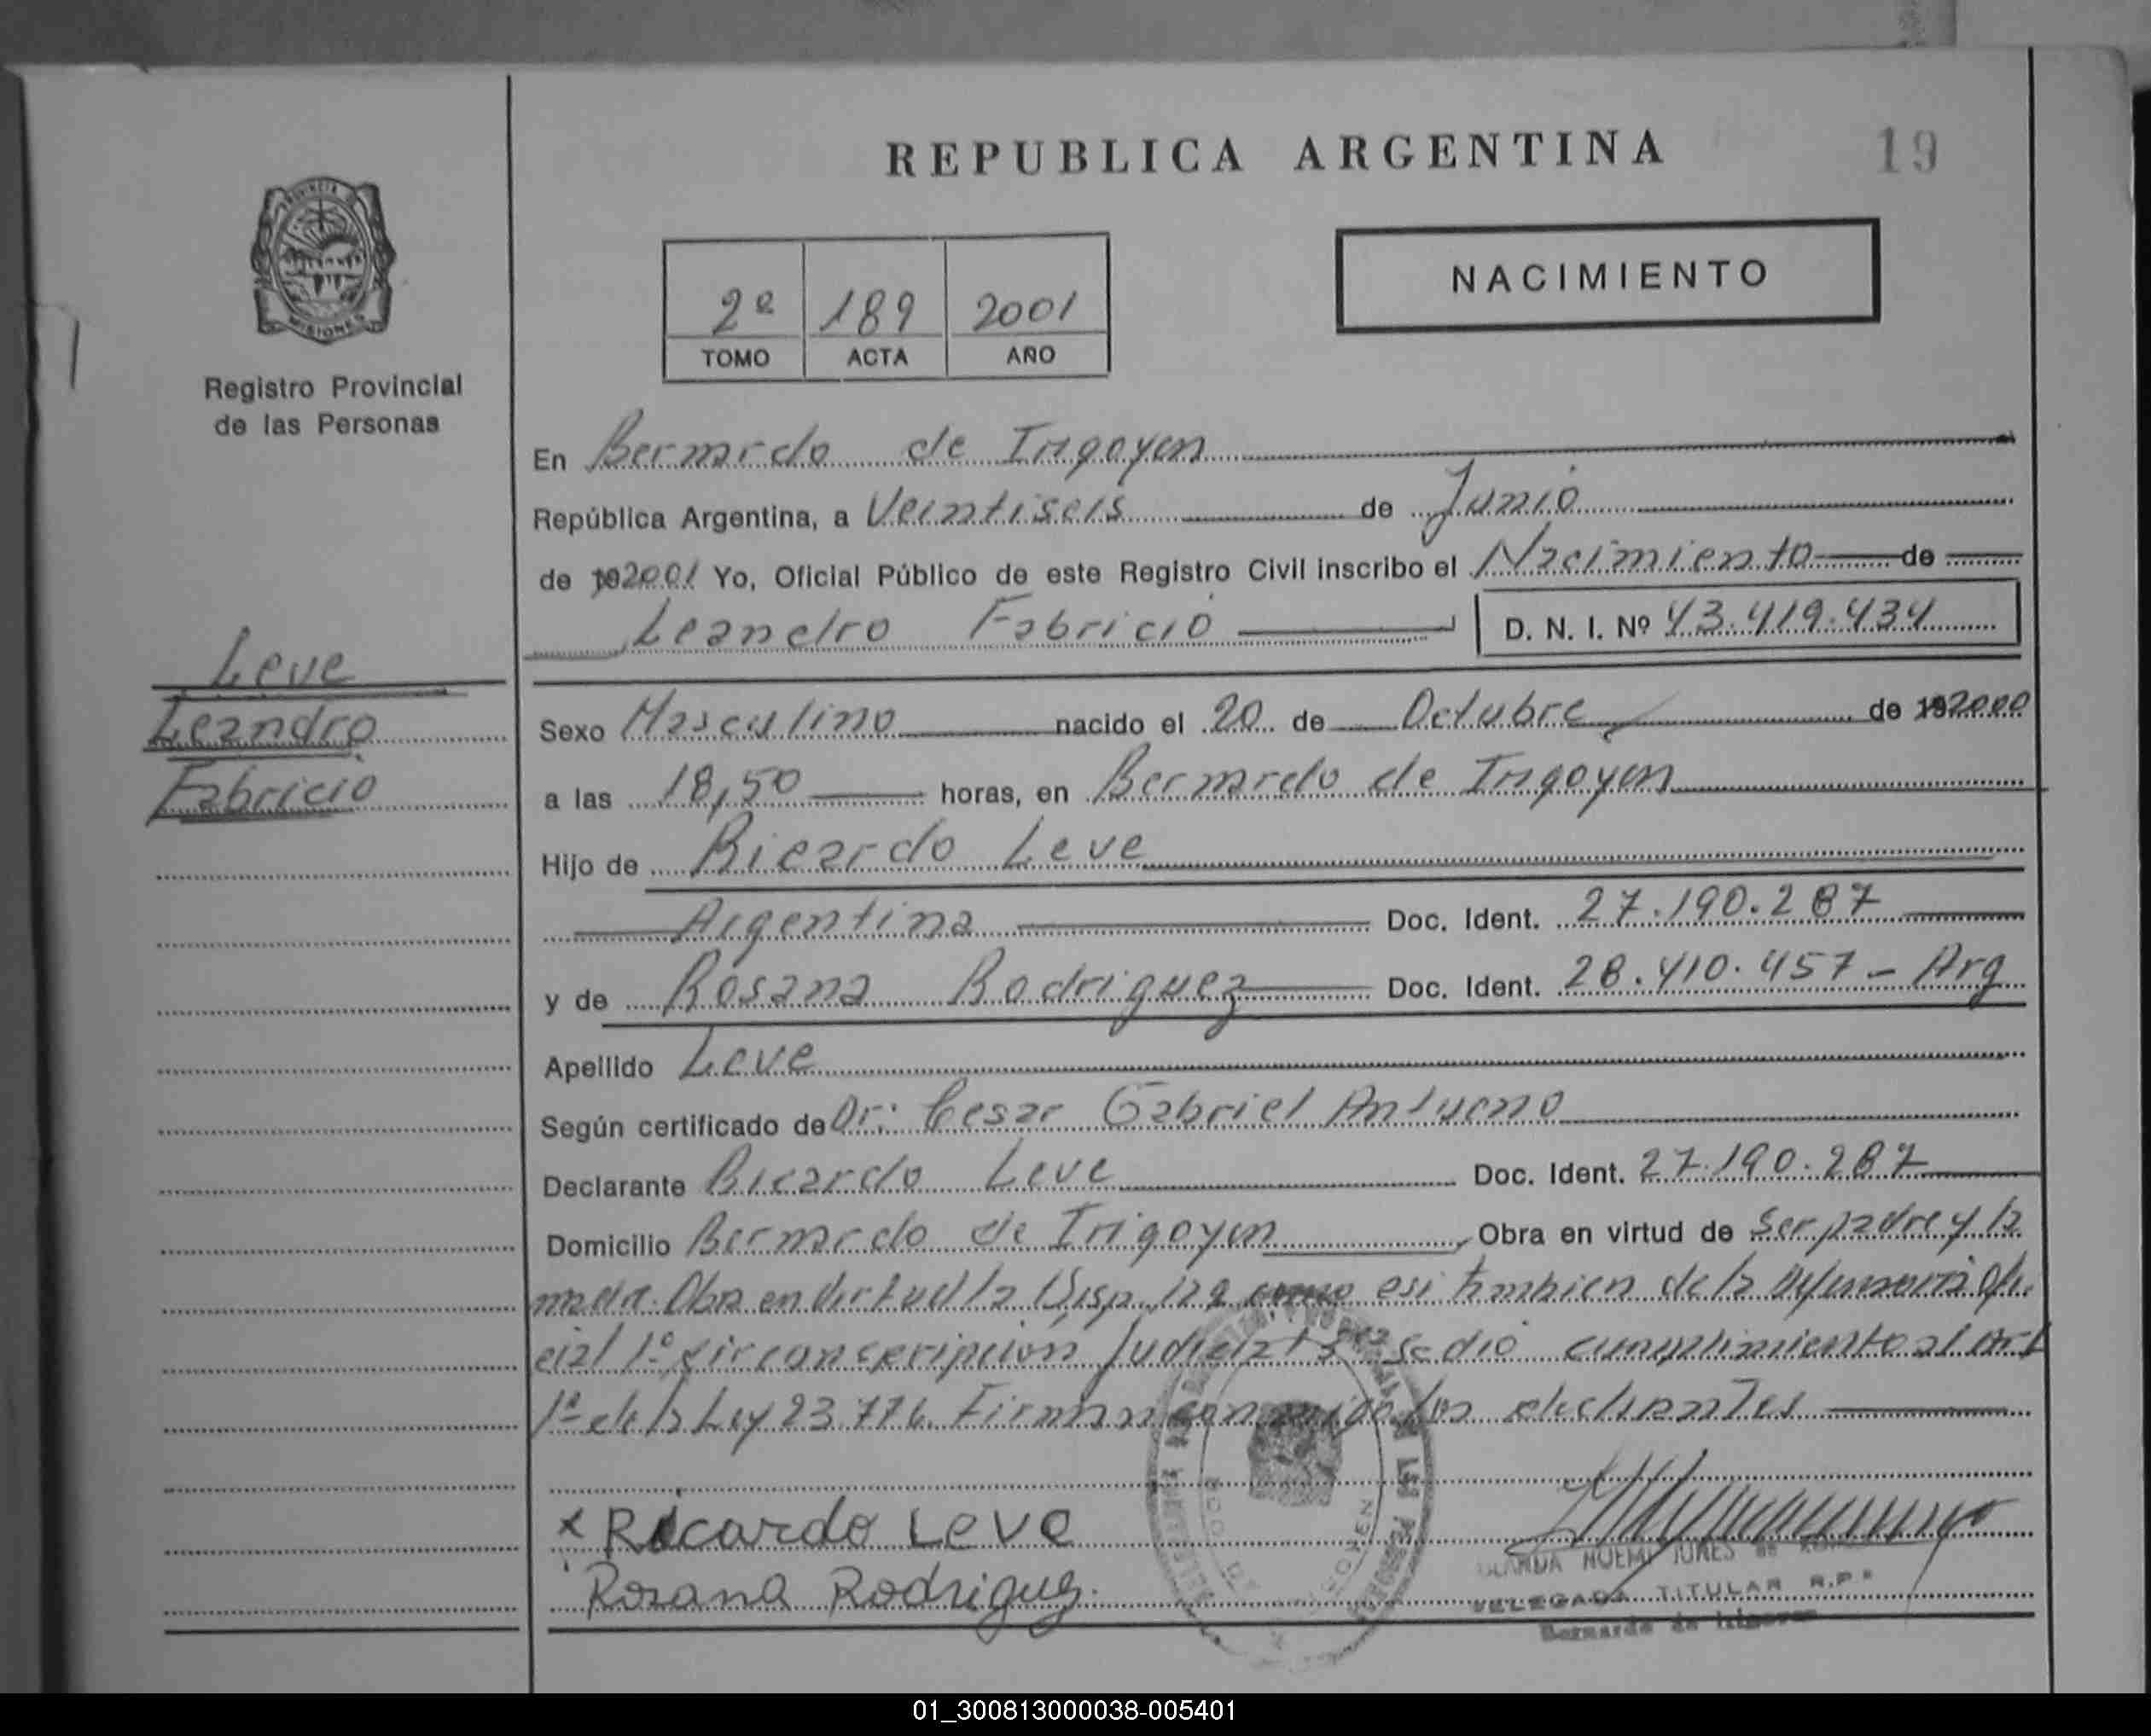 REPUBLICA ARGENTINA
19
PROVINCIA
MISIONES
Registro Provincial
de las Personas
2º 189 2001
TOMO ACTA AÑO
NACIMIENTO
En Bernardo de Irigoyen
República Argentina, a Veintiseis de Junio
de 192001 Yo, Oficial Público de este Registro Civil inscribo el Nacimiento de
Leandro Fabricio D. N. I. Nº 43.419.434
Leve
Leandro
Fabricio
Sexo Masculino nacido el 20 de Octubre de 192000
a las 18,50 horas, en Bernardo de Irigoyen
Hijo de Ricardo Leve
Argentina Doc. Ident. 27.190.287
y de Rosana Rodriguez Doc. Ident. 28.410.457 - Arg
Apellido Leve
Según certificado de Dr: Cesar Gabriel Antueno
Declarante Ricardo Leve Doc. Ident. 27.190.287
Domicilio Bernardo de Irigoyen, Obra en virtud de Ser padre y la
madre. Obra en virtud la Disp. esi tambien de la Defensoria Ofi-
cial 1º circunscripción Judicial se dió cumplimiento al Art
1º de la Ley 23.776. Firman los declarantes
x Ricardo Leve
Rosana Rodriguez.
NOEMI
DELEGADA TITULAR R.P.P
Bernardo de Irigoyen
01_300813000038-005401